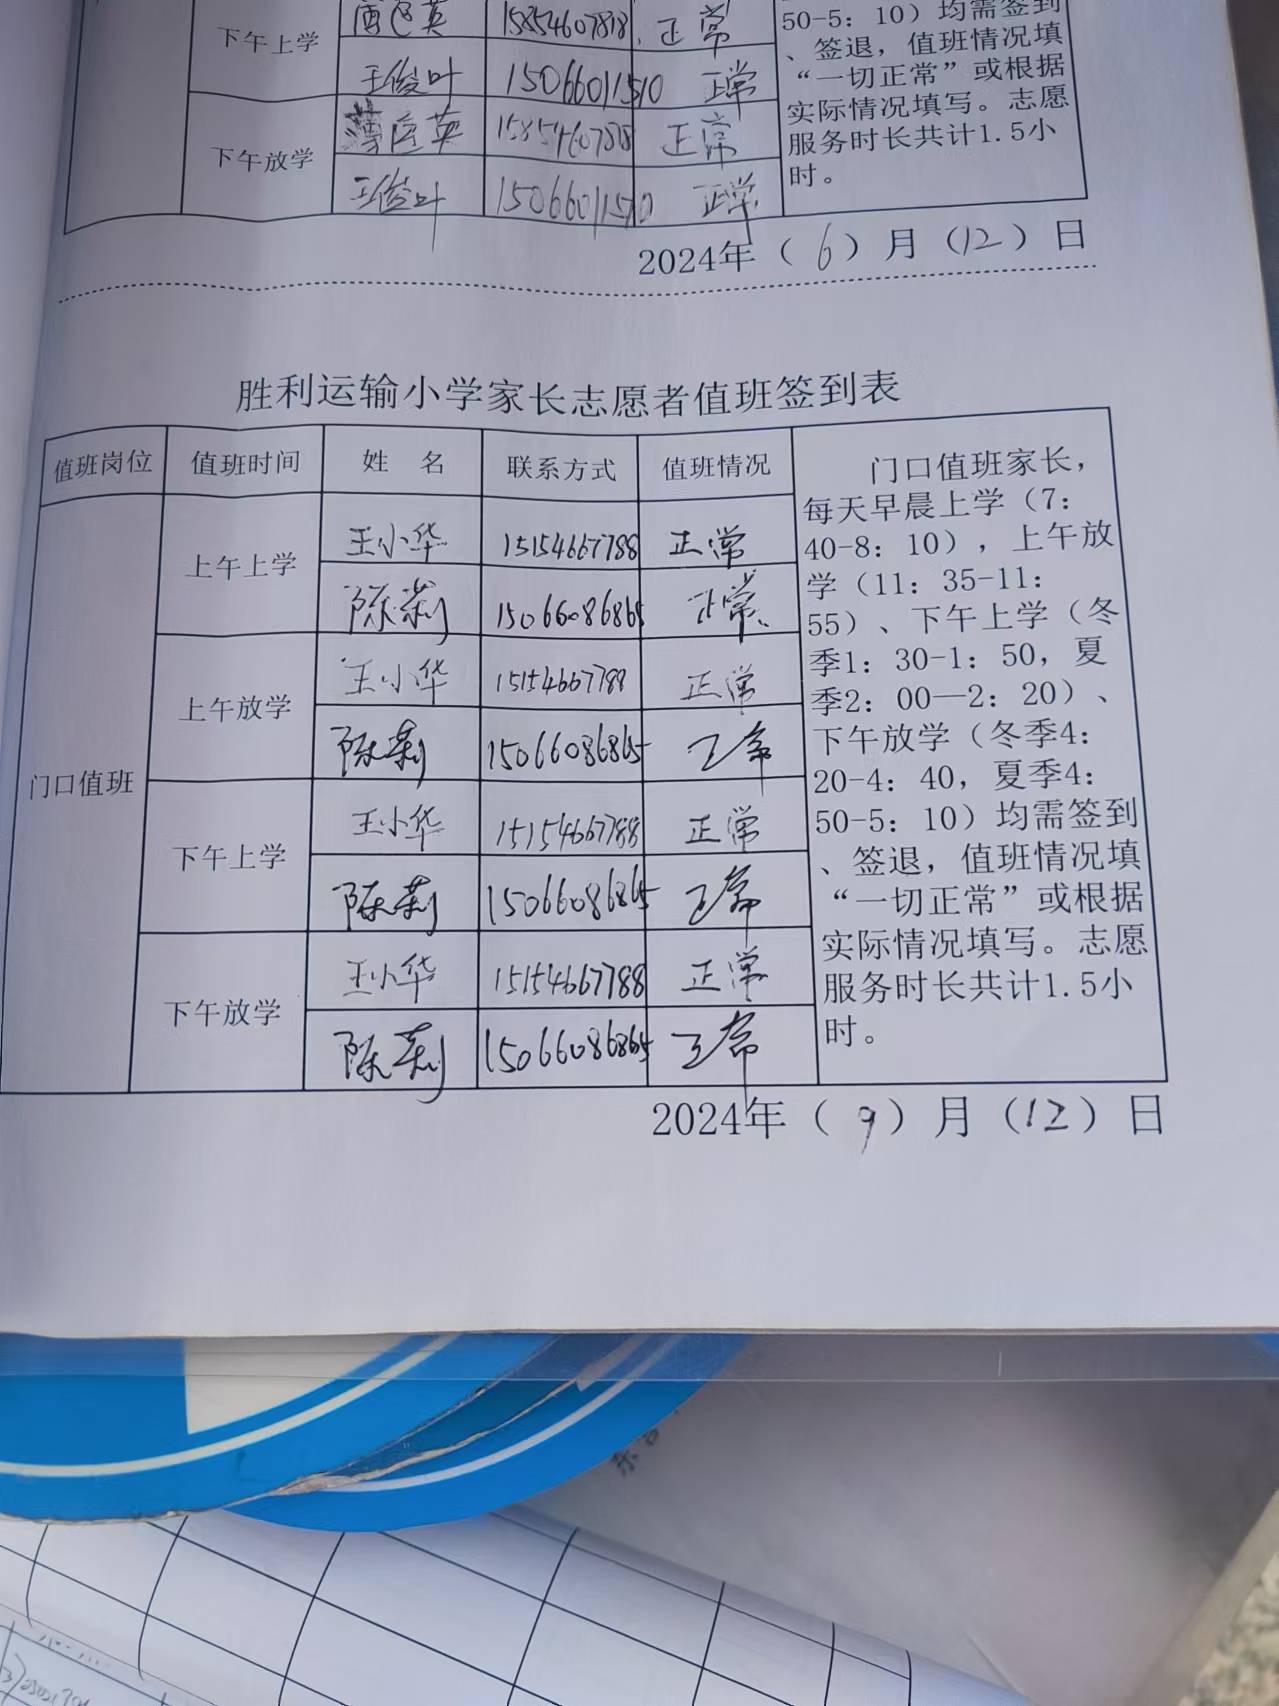 下午上学 15854607818 正常
50-5：10）均需签到
、签退，值班情况填
王俊叶 15066011510 正常
“一切正常”或根据
实际情况填写。志愿
下午放学 英 15854607818 正常
服务时长共计1.5小
时。
王俊叶 15066011510 正常
2024年（6）月（12）日
胜利运输小学家长志愿者值班签到表
值班岗位 值班时间 姓 名 联系方式 值班情况
门口值班
上午上学
王小华 15154667788 正常
陈莉 15066086865 正常
上午放学
王小华 15154667788 正常
陈莉 15066086865 正常
下午上学
王小华 15154667788 正常
陈莉 15066086865 正常
下午放学
王小华 15154667788 正常
陈莉 15066086865 正常
门口值班家长，
每天早晨上学（7：
40-8：10），上午放
学（11：35-11：
55）、下午上学（冬
季1：30-1：50，夏
季2：00—2：20）、
下午放学（冬季4：
20-4：40，夏季4：
50-5：10）均需签到
、签退，值班情况填
“一切正常”或根据
实际情况填写。志愿
服务时长共计1.5小
时。
2024年（9）月（12）日